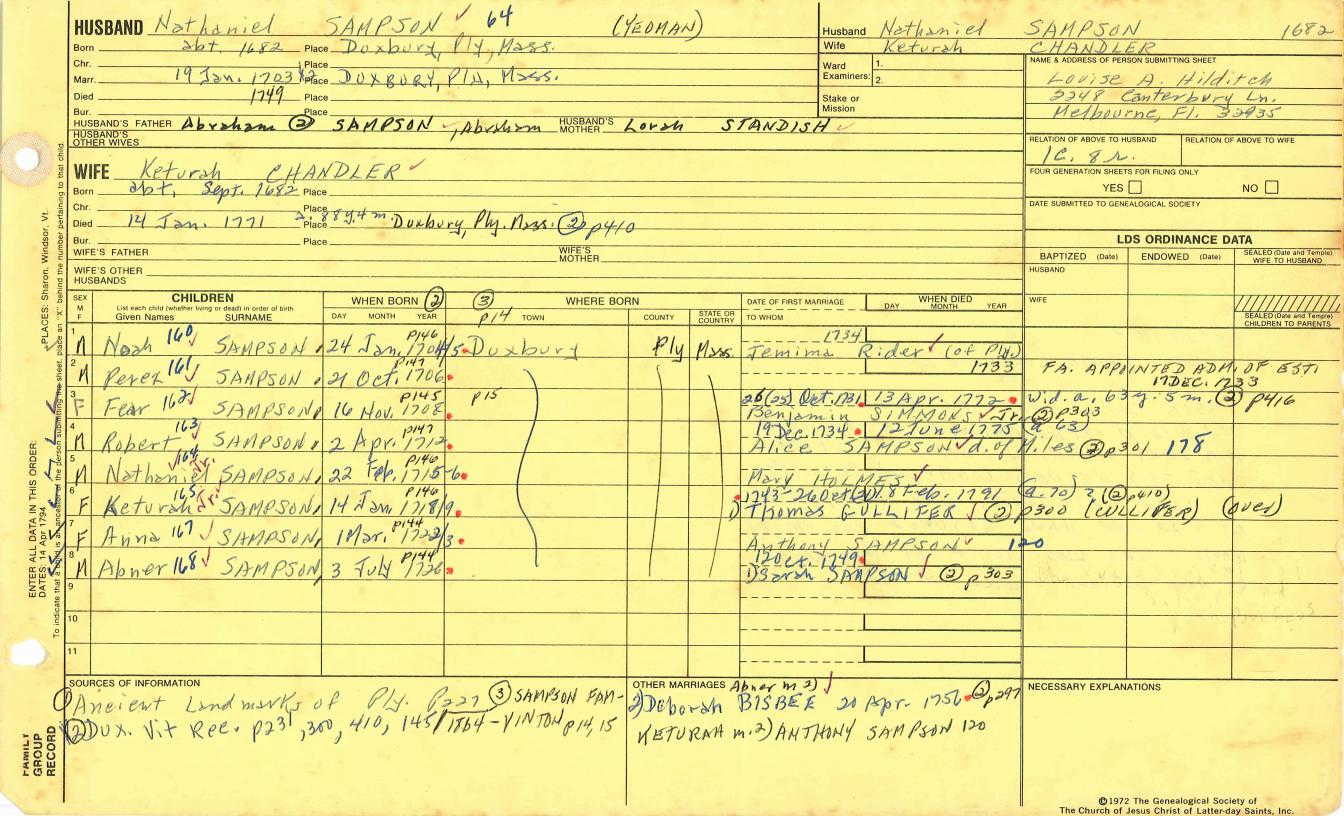 HUSBAND Nathaniel SAMPSON ✓ 64 (YEOMAN)
Born abt. 1682 Place Duxbury, Ply, Mass.
Chr. Place
Marr. 19 Jan. 1703/ Place DUXBURY, Ply, Mass.
Died 1749 Place
Bur. Place
HUSBAND'S FATHER Abraham ② SAMPSON ✓, Abraham HUSBAND'S MOTHER Lorah STANDISH ✓
HUSBAND'S OTHER WIVES
WIFE Keturah CHANDLER ✓
Born abt. Sept. 1682 Place
Chr. Place
Died 14 Jan. 1771 a. 88y4m. Place Duxbury, Ply. Mass. ② p410
Bur. Place
WIFE'S FATHER WIFE'S MOTHER
WIFE'S OTHER HUSBANDS
Husband Nathaniel SAMPSON 1682
Wife Keturah CHANDLER
Ward Examiners: 1. 2.
Stake or Mission
NAME & ADDRESS OF PERSON SUBMITTING SHEET
Louise A. Hilditch
2248 Canterbury Ln.
Melbourne, Fl. 32935
RELATION OF ABOVE TO HUSBAND RELATION OF ABOVE TO WIFE
1C. 8r.
FOUR GENERATION SHEETS FOR FILING ONLY
YES NO
DATE SUBMITTED TO GENEALOGICAL SOCIETY
LDS ORDINANCE DATA
BAPTIZED (Date) ENDOWED (Date) SEALED (Date and Temple) WIFE TO HUSBAND
HUSBAND
WIFE
SEALED (Date and Temple) CHILDREN TO PARENTS
SEX M F CHILDREN WHEN BORN ② ③ WHERE BORN DATE OF FIRST MARRIAGE WHEN DIED
List each child (whether living or dead) in order of birth
Given Names SURNAME DAY MONTH YEAR p14 TOWN COUNTY STATE OR COUNTRY TO WHOM DAY MONTH YEAR
1 M Noah 160 ✓ SAMPSON, 24 Jan. 1704/5 p146 Duxbury Ply Mass 1734
Jemima Rider ✓ (of Ply)
2 M Perez 161 ✓ SAMPSON, 21 Oct. 1706 p147 1733 FA. APPOINTED ADM. OF EST.
17 DEC. 1733
3 F Fear 162 ✓ SAMPSON, 16 Nov. 1708 p145 p15 26 (25) Oct. 1731 13 Apr. 1772 wid. a. 63y. 5m. ② p416
Benjamin SIMMONS ✓ Jr. ② p303
4 M Robert 163 SAMPSON, 2 Apr. 1712 p147 19 Dec. 1734 12 June 1775 (a 63)
Alice SAMPSON ✓ d. of Miles ② p301 178
5 M Nathaniel Jr. 164 ✓ SAMPSON, 22 Feb. 1715-6 p146
Mary HOLMES ✓
6 F Keturah Jr. 165 SAMPSON, 14 Jan 1718/9 p146 1743-26 Oct 8 Feb. 1791 (a. 70) ? (② p410)
1) Thomas GULLIFER ✓ ② p300 (CULLIFER) (over)
7 F Anna 167 ✓ SAMPSON, 1 Mar. 1722/3 p144
Anthony SAMPSON ✓ 120
8 M Abner 168 ✓ SAMPSON, 3 July 1726 p144 12 Oct. 1749
1) Sarah SAMPSON ✓ ② p303
9
10
11
SOURCES OF INFORMATION
① Ancient Landmarks of Ply. p227 ③ SAMPSON FAM-
② Dux. Vit Rec. p231, 300, 410, 145/ 1864-VINTON p14, 15
OTHER MARRIAGES Abner m. 2) ✓
2) Deborah BISBEE 20 Apr. 1756 ② p297
KETURAH m. 2) ANTHONY SAMPSON 120
NECESSARY EXPLANATIONS
©1972 The Genealogical Society of
The Church of Jesus Christ of Latter-day Saints, Inc.
FAMILY GROUP RECORD
ENTER ALL DATA IN THIS ORDER:
DATES: 14 Apr 1794
PLACES: Sharon, Windsor, Vt.